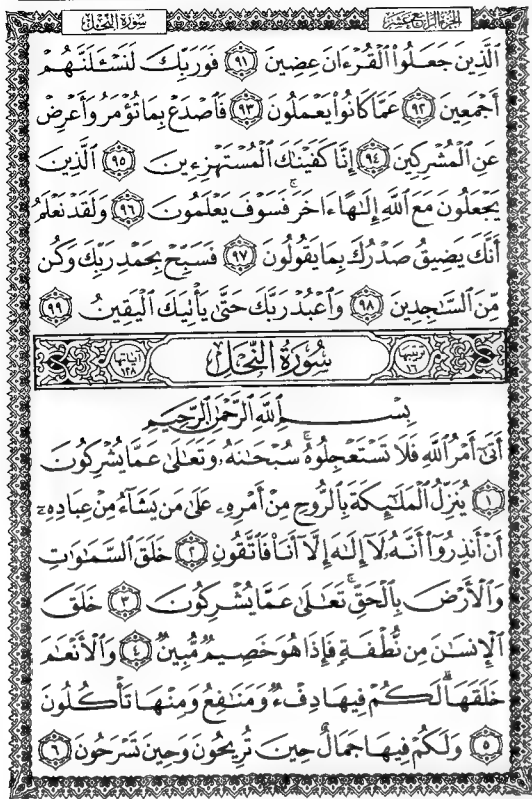 الجزء الرابع عشر
سورة النحل
الَّذِينَ جَعَلُوا۟ الْقُرْءَانَ عِضِينَ ٩١ فَوَرَبِّكَ لَنَسْـَٔلَنَّهُمْ
أَجْمَعِينَ ٩٢ عَمَّا كَانُوا۟ يَعْمَلُونَ ٩٣ فَاصْدَعْ بِمَا تُؤْمَرُ وَأَعْرِضْ
عَنِ الْمُشْرِكِينَ ٩٤ إِنَّا كَفَيْنَٰكَ الْمُسْتَهْزِءِينَ ٩٥ الَّذِينَ
يَجْعَلُونَ مَعَ اللَّهِ إِلَٰهًا ءَاخَرَ ۚ فَسَوْفَ يَعْلَمُونَ ٩٦ وَلَقَدْ نَعْلَمُ
أَنَّكَ يَضِيقُ صَدْرُكَ بِمَا يَقُولُونَ ٩٧ فَسَبِّحْ بِحَمْدِ رَبِّكَ وَكُن
مِّنَ السَّٰجِدِينَ ٩٨ وَاعْبُدْ رَبَّكَ حَتَّىٰ يَأْتِيَكَ الْيَقِينُ ٩٩
ترتيبها ١٦
سُورَةُ النَّحْلِ
آياتها ١٢٨
بِسْمِ اللَّهِ الرَّحْمَٰنِ الرَّحِيمِ
أَتَىٰٓ أَمْرُ اللَّهِ فَلَا تَسْتَعْجِلُوهُ ۚ سُبْحَٰنَهُۥ وَتَعَٰلَىٰ عَمَّا يُشْرِكُونَ
١ يُنَزِّلُ الْمَلَٰٓئِكَةَ بِالرُّوحِ مِنْ أَمْرِهِۦ عَلَىٰ مَن يَشَآءُ مِنْ عِبَادِهِۦٓ
أَنْ أَنذِرُوٓا۟ أَنَّهُۥ لَآ إِلَٰهَ إِلَّآ أَنَا۠ فَاتَّقُونِ ٢ خَلَقَ السَّمَٰوَٰتِ
وَالْأَرْضَ بِالْحَقِّ ۚ تَعَٰلَىٰ عَمَّا يُشْرِكُونَ ٣ خَلَقَ
الْإِنسَٰنَ مِن نُّطْفَةٍ فَإِذَا هُوَ خَصِيمٌ مُّبِينٌ ٤ وَالْأَنْعَٰمَ
خَلَقَهَا ۗ لَكُمْ فِيهَا دِفْءٌ وَمَنَٰفِعُ وَمِنْهَا تَأْكُلُونَ
٥ وَلَكُمْ فِيهَا جَمَالٌ حِينَ تُرِيحُونَ وَحِينَ تَسْرَحُونَ ٦